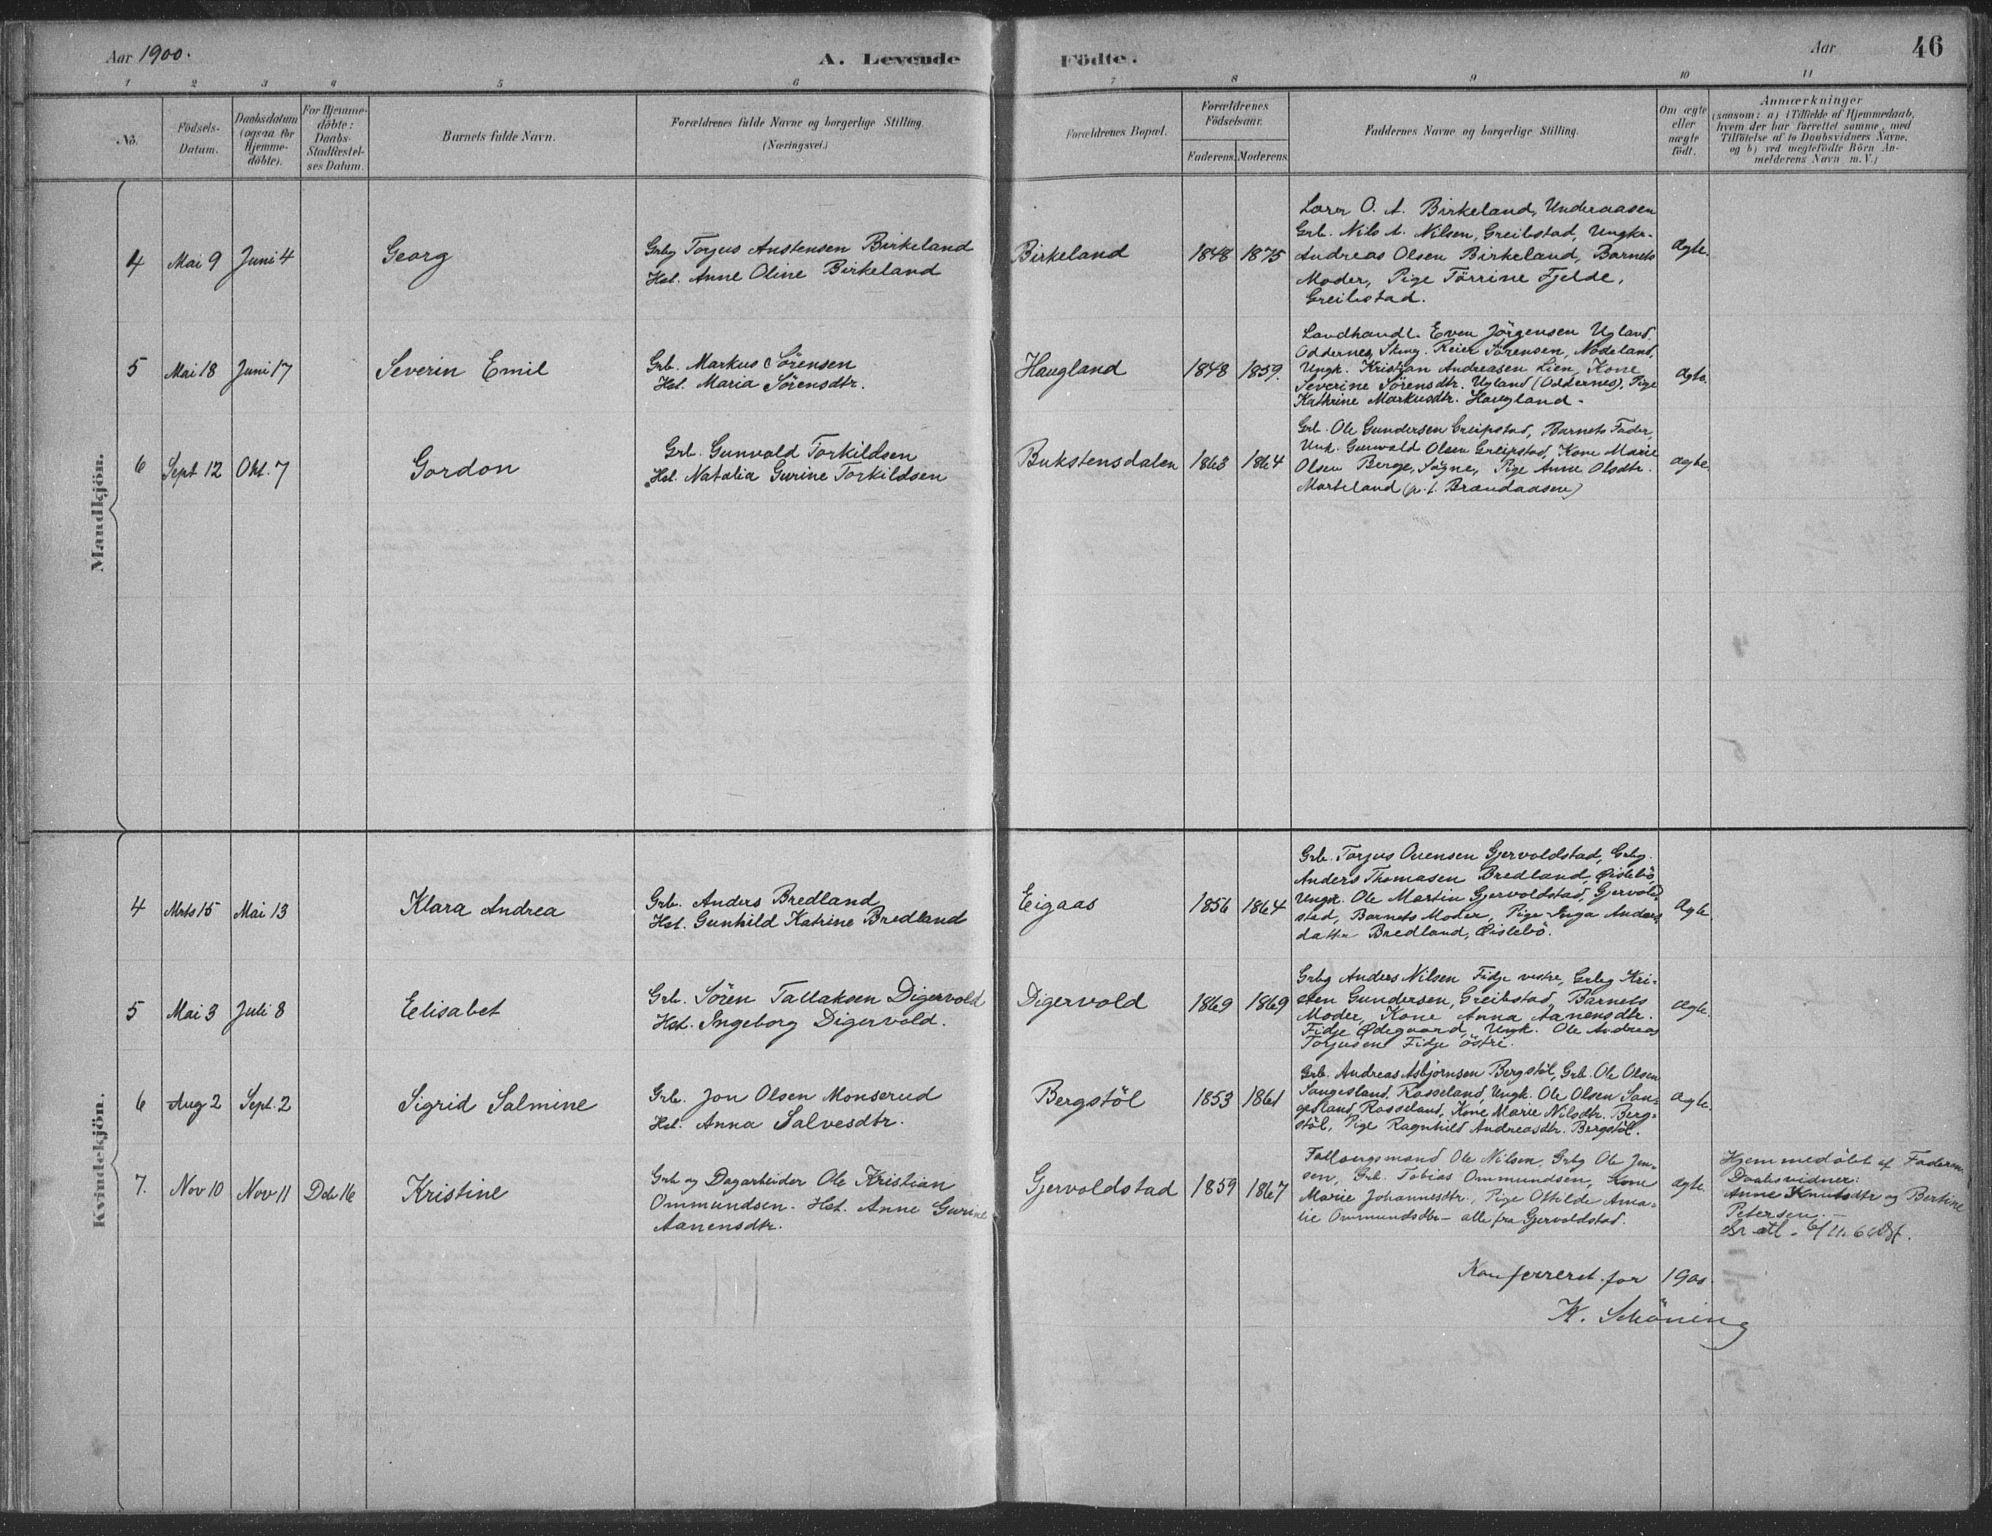 Aar 1900.
A. Levende Födte.
Aar
46
1 2 3 4 5 6 7 8 9 10 11
No.
Födsels-
Datum.
Daabsdatum
(ogsaa for
Hjemme-
döbte).
For Hjemme-
döbte:
Daabs-
Stadfæstel-
ses Datum.
Barnets fulde Navn.
Forældrenes fulde Navne og borgerlige Stilling.
(Næringsvei.)
Forældrenes Bopæl.
Forældrenes
Födselsaar.
Faderens. Moderens.
Faddernes Navne og borgerlige Stilling.
Om ægte
eller
uægte
födt.
Anmærkninger
(saasom: a) i Tilfælde af Hjemmedaab,
hvem der har forrettet samme, med
Tilföielse af to Daabsvidners Navne,
og b) ved uægtefödte Börn An-
melderens Navn m. V.)
Mandkjön.
4
Mai 9
Juni 4
Georg
Grbg Torjus Anstensen Birkeland
Hst. Anne Oline Birkeland
Birkeland
1848
1875
Lærer O. A. Birkeland, Underaasen
Grb. Nils A. Nilsen, Greibstad, Ungkr.
Andreas Olsen Birkeland, Barnets
Moder, Pige Törrine Fjelde,
Greibstad.
ægte.
5
Mai 18
Juni 17
Severin Emil
Grb. Markus Sörensen
Hst. Maria Sörensdtr.
Haugland
1848
1859.
Landhandl. Even Jörgensen Ugland
Oddernes, Reier Sörensen, Nodeland,
Ungk. Kristian Andreasen Lien, Kone
Severine Sörensdtr. Ugland (Oddernes), Pige
Kathrine Markusdtr. Haugland.
ægte.
6
Sept 12
Okt. 7
Gordon
Grb. Gunvald Torkildsen
Hst. Natalia Gurine Torkildsen
Bukstensdalen
1863
1864
Grb. Ole Gundersen Greipstad, Barnets Fader,
Unk. Gunvald Olsen Greipstad, Kone Marie
Olsen Berge, Sögne, Pige Anne Olsdtr.
Marteland (p. t. Brændaasen)
ægte.
Kvindekjön.
4
Mrts 15
Mai 13
Klara Andrea
Grb. Anders Bredland
Hst. Gunhild Katrine Bredland
Eigaas
1856
1864
Grb. Torjus Ouensen Gjervoldstad, Grbg.
Anders Thomasen Bredland, Øislebö,
Ungk. Ole Martin Gjervoldstad, Gjervold-
stad, Barnets Moder, Pige Inga Anders-
datter Bredland, Øislebö.
Ægte.
5
Mai 3
Juli 8
Elisabet
Grb. Sören Tallaksen Digervold
Hst. Ingeborg Digervold.
Digervold
1869
1869
Grbg Anders Nilsen Fidje vestre, Grbg Kri-
sten Gundersen, Greibstad, Barnets
Moder, Kone Anna Aanensdtr.
Fidje Ødegaard, Ungk. Ole Andreas
Torjusen Fidje östre.
ægte.
6
Aug 2
Sept. 2
Sigrid Salmine
Grb. Jon Olsen Monserud
Hst. Anna Salvesdtr.
Bergstöl
1853
1861
Grb. Andreas Asbjörnsen Bergstöl, Grb. Ole Olsen
Sangesland, Rosseland, Ungk. Ole Olsen San-
gesland, Rosseland, Kone Marie Nilsdtr. Berg-
stöl, Pige Ragnhild Andreasdtr. Bergstöl.
ægte.
7.
Nov 10
Nov 11
Deb 16
Kristine
Grb og Dagarbeider Ole Kristian
Ommundsen. Hst. Anne Gurine
Aanensdtr.
Gjervoldstad
1859
1867
Ole Nilsen, Grbg Ole Jen-
sen, Grb. Tobias Ommundsen, Kone
Marie Johannesdtr., Pige Othilde Ama-
lie Ommundsdtr – alle fra Gjervoldstad.
ægte.
Hjemmedöbt af Faderen.
Daabsvidner:
Anne Knutsdtr og Bertine
Petersen. –
Konfereret for 1900.
K. Schöning